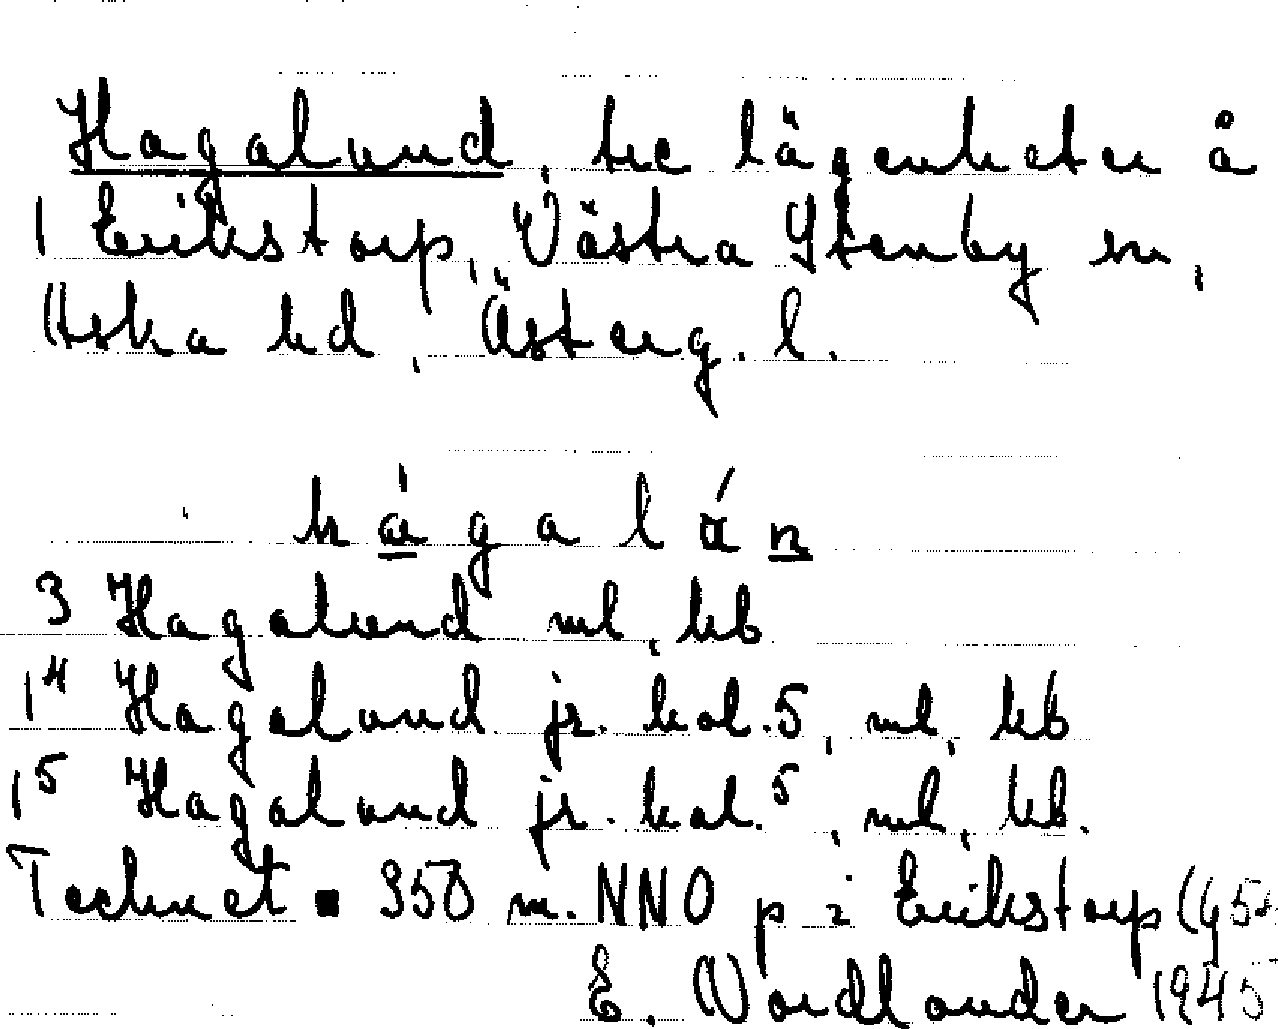 Hagalund, tre lägenheter å
1 Erikstorp, Västra Stenby sn,
Aska hd, Österg. l.
hágalún
3 Hagalund ml, kb
1⁴ Hagalund jr. kal. 5, ml, kb
1⁵ Hagalund jr. kal. 5, ml, kb.
Tecknet ▪ 350 m. NNO p i Erikstorp
E. Nordlander 1945